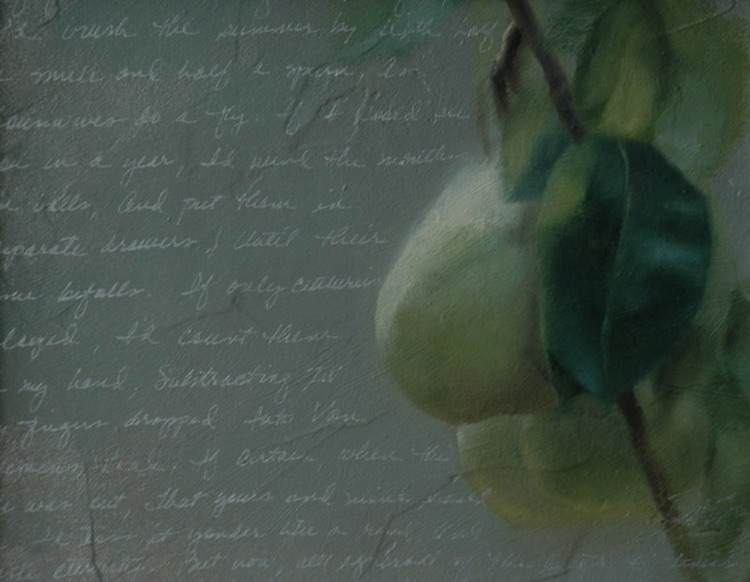 brush the summer by with half
smile and half a spurn, As
housewives do a fly. If I could see
you in a year, I'd wind the months
in balls, And put them in
separate drawers, Until their
time befalls. If only centuries
delayed, I'd count them
on my hand, Subtracting till
my fingers dropped Into Van
Diemens Land. If certain, when this
life was out, that yours and mine should
be I'd toss it yonder like a rind, And
taste eternity. But now, all ignorant of the